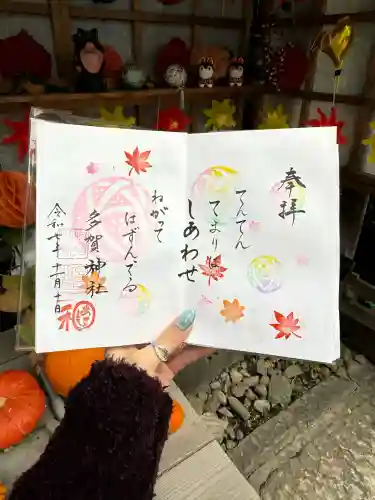 奉拝
てんてん
てまりは
しあわせ
ねがって
はずんでる
多賀神社
令和七年十一月十日